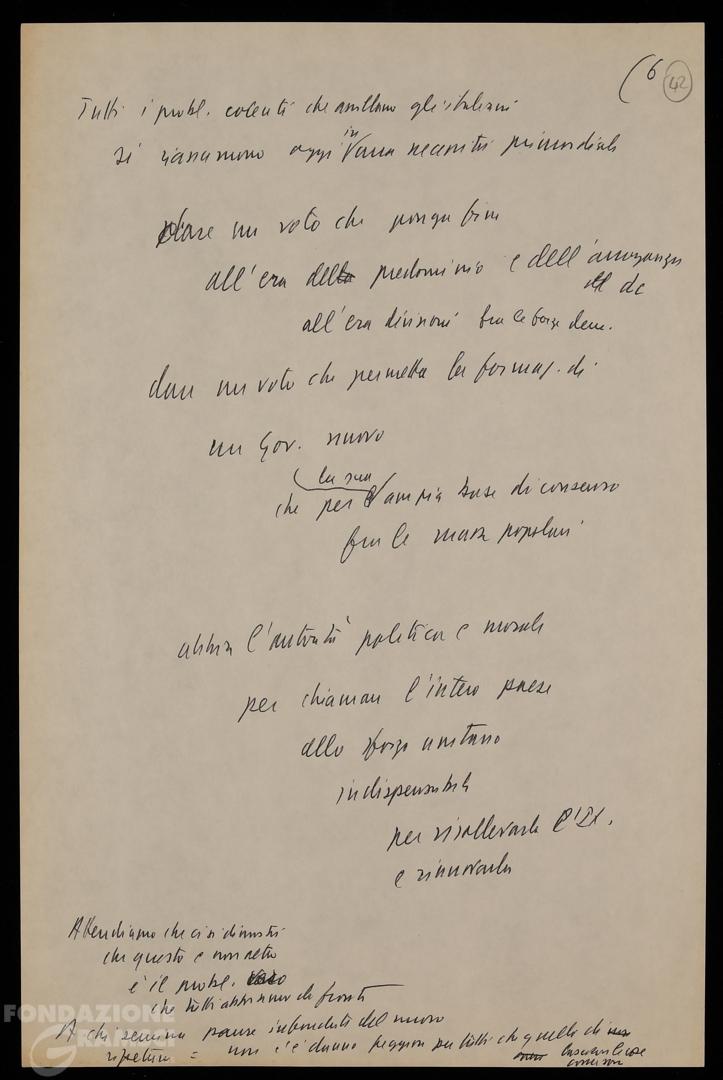 (6 42
Tutti i probl. che gli italiani
si riassumono oggi in una necessità primordiale
dare un voto che ponga fine
all'era della predominio e dell'arroganza
dc
all'era divisioni fra le forze dem.
dare un voto che permetta la formaz. di
un Gov. nuovo
la sua
che per ampia base di consenso
fra le masse popolari
abbia l'autorità politica e morale
per chiamare l'intero paese
allo sforzo unitario
indispensabile
per risollevare l'It.
e rinnovarla
Attendiamo che ci si dimostri
che questo e non altro
è il probl. vero
che tutti abbiamo di fronte
A chi semina paure infondate del nuovo
ripetiamo = non c'è danno peggiore per tutti che quello di
lasciare le cose
come sono
FONDAZIONE
GRAMSCI